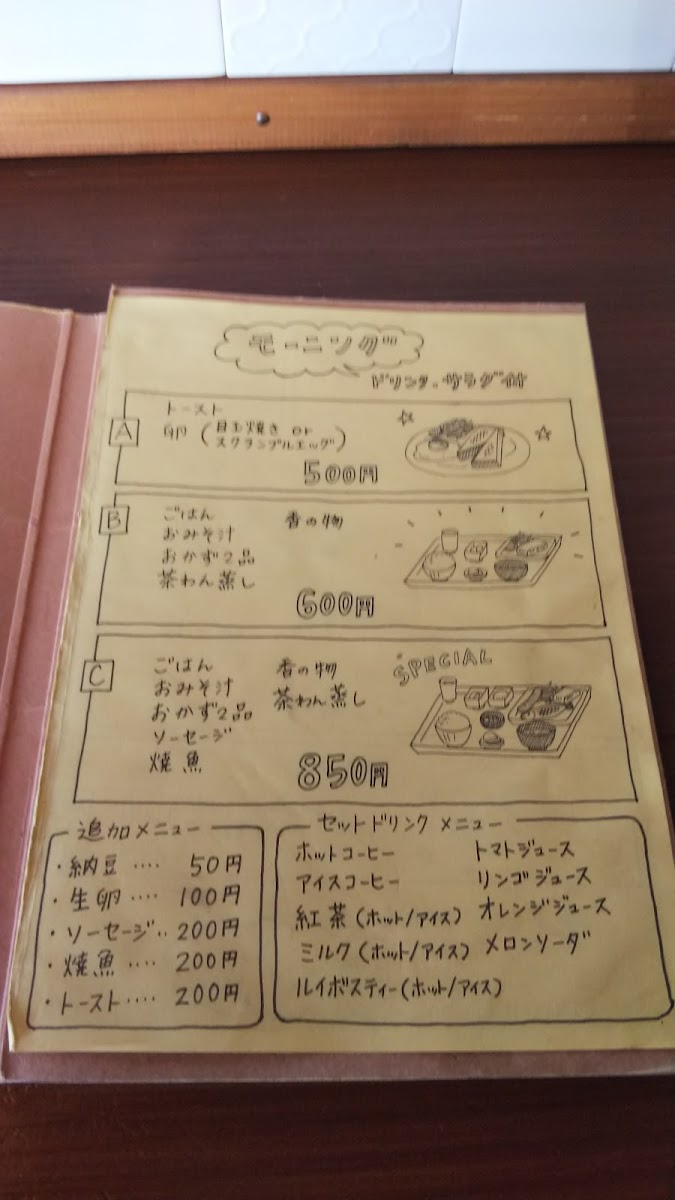 モーニング
ドリンク、サラダ付
A
トースト
卵(目玉焼き or
スクランブルエッグ)
500円
B
ごはん 香の物
おみそ汁
おかず2品
茶わん蒸し
600円
C
ごはん 香の物
おみそ汁 茶わん蒸し
おかず2品
ソーセージ
焼魚
SPECIAL
850円
追加メニュー
・納豆‥‥ 50円
・生卵‥‥ 100円
・ソーセージ‥200円
・焼魚‥‥ 200円
・トースト‥‥200円
セットドリンク メニュー
ホットコーヒー トマトジュース
アイスコーヒー リンゴジュース
紅茶(ホット/アイス) オレンジジュース
ミルク(ホット/アイス) メロンソーダ
ルイボスティー(ホット/アイス)